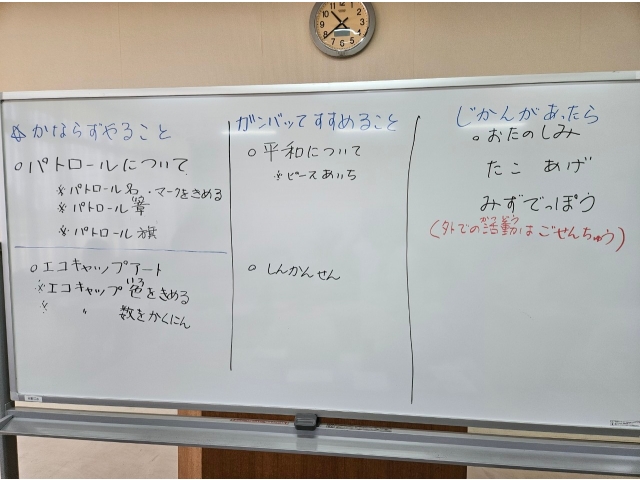 ☆かならずやること
○パトロールについて
※パトロール名・マークをきめる
※パトロール章
※パトロール旗
○エコキャップアート
※エコキャップ色をきめる
いろ
※ 〃 数をかくにん
ガンバッてすすめること
○平和について
※ピースあいち
○しんかんせん
じかんがあったら
○おたのしみ
たこ あげ
みずでっぽう
(外での活動はごぜんちゅう)
かつどう